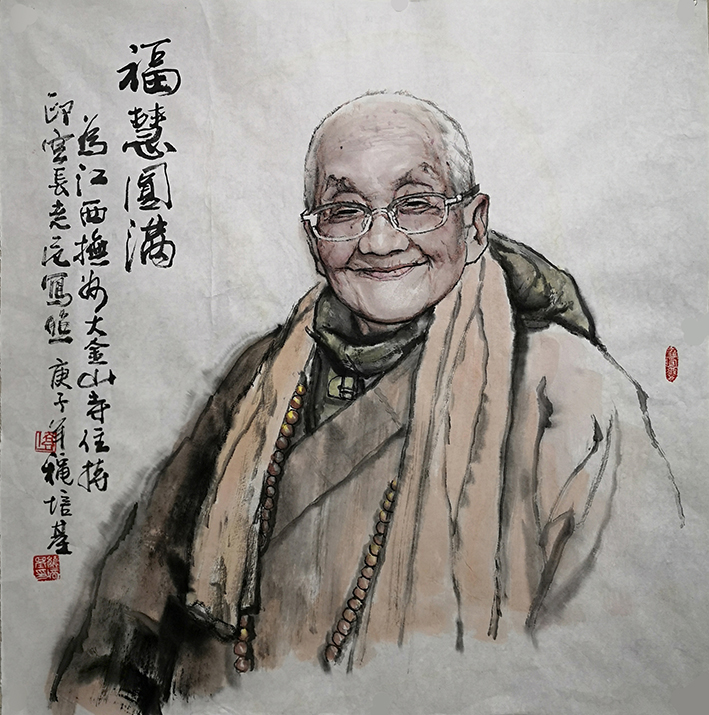 福慧圓滿
為江西撫州大金山寺住持
印空長老尼寫照 庚子年 穐培基